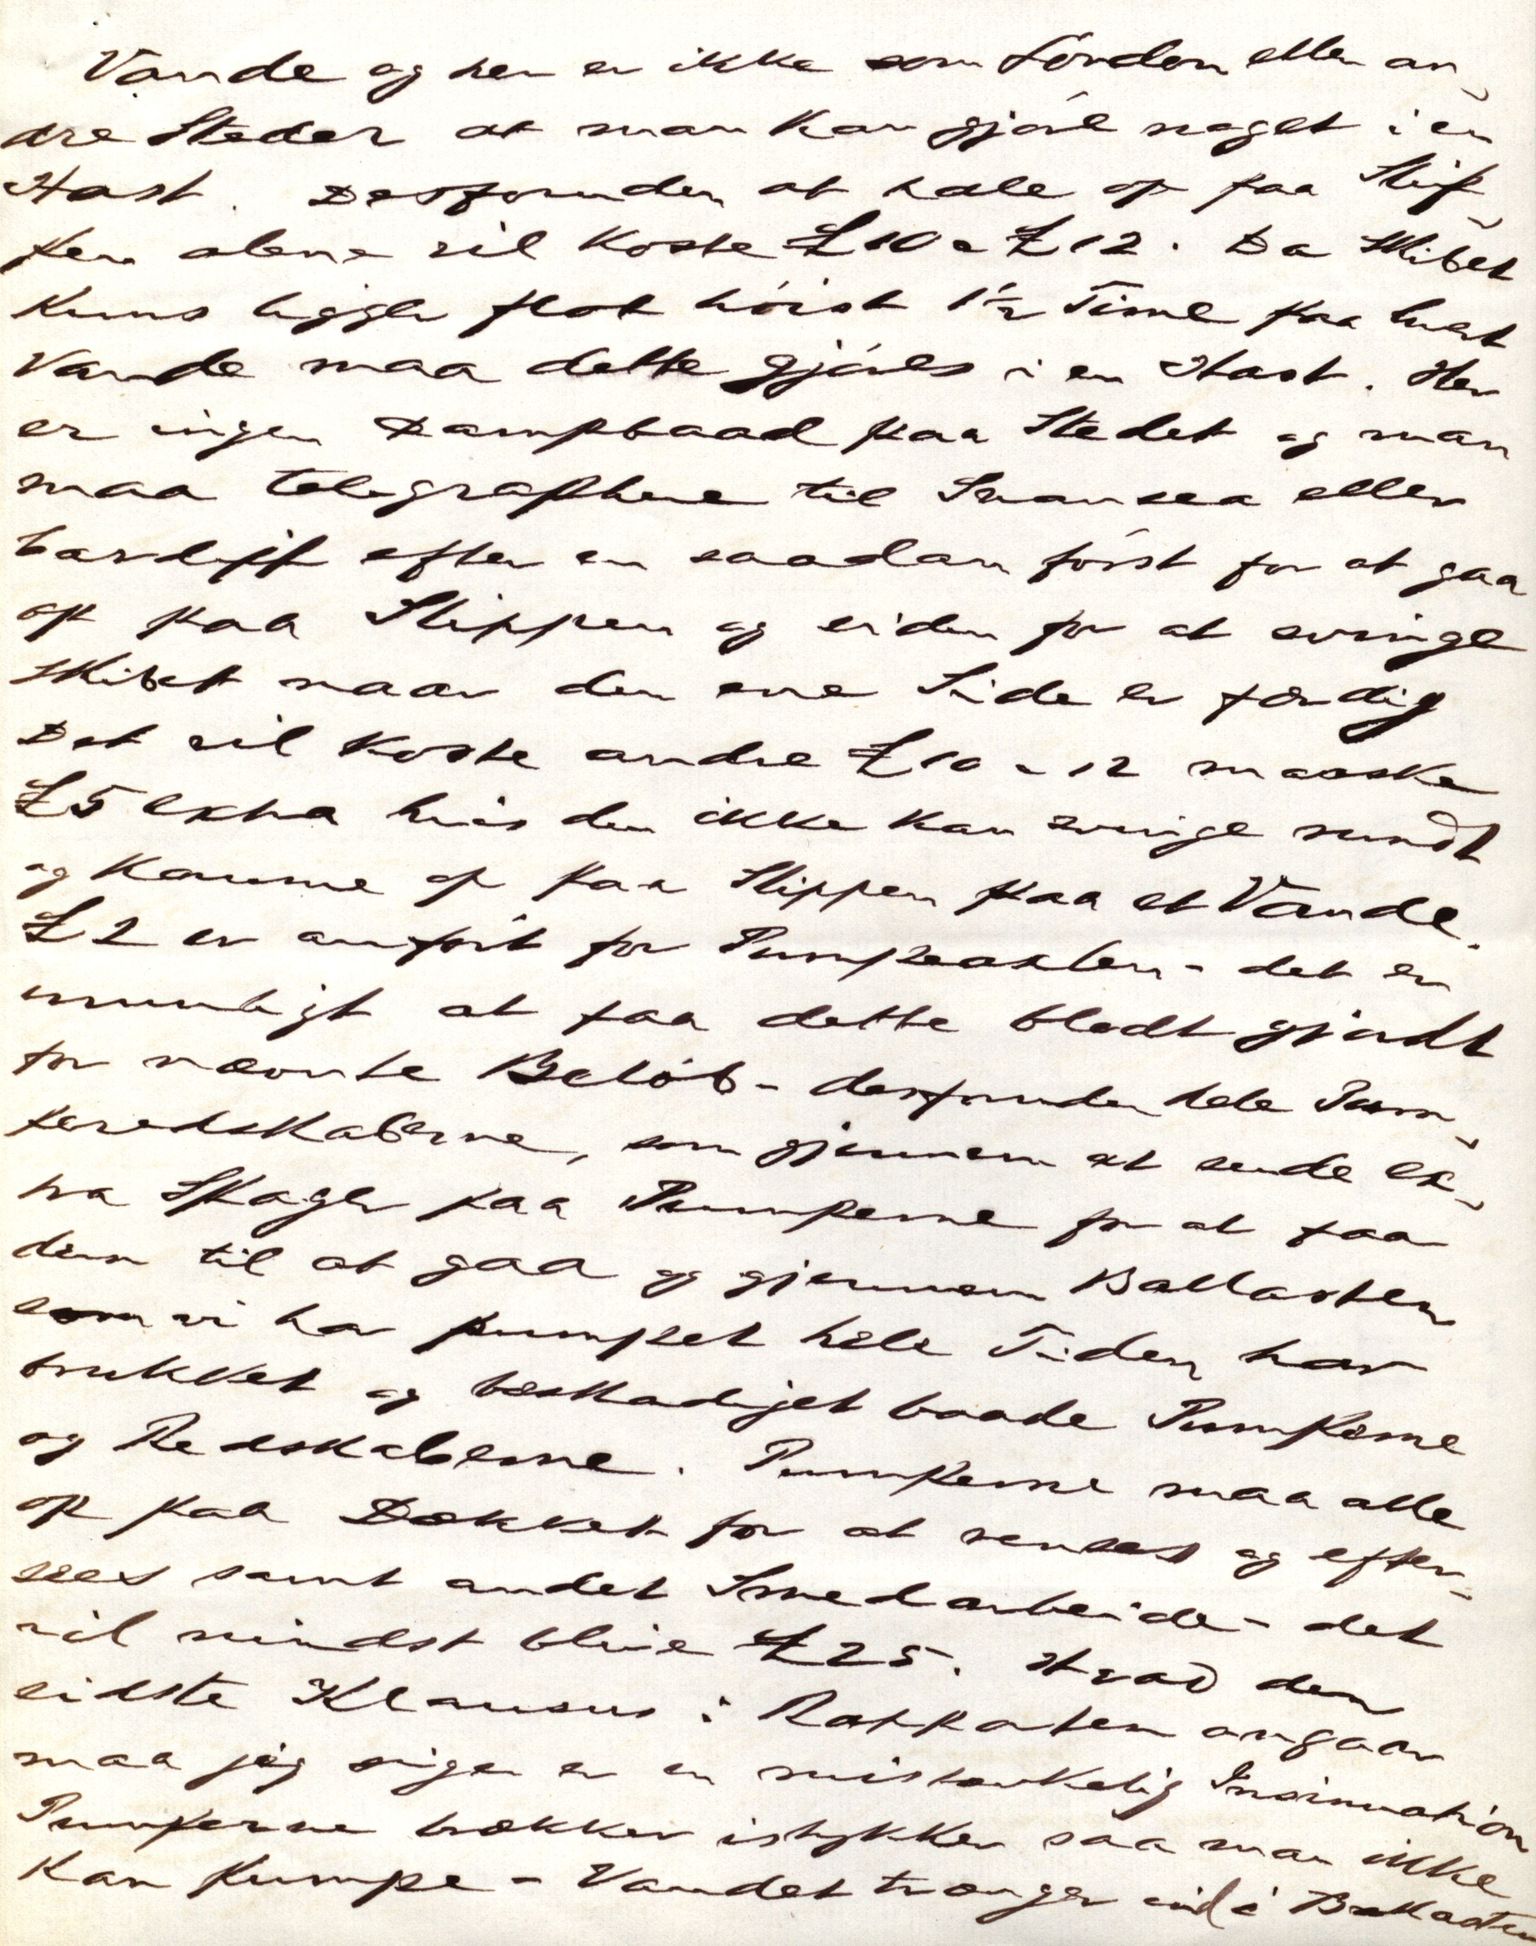 Vande og her er ikke som London eller an-
dre Steder at man kan gjøre noget i en
Hast. Desforuden at hale op paa Slip-
pen alene vil koste £10 a £12. Da Skibet
kuns ligger flot høist 1½ Time paa hvert
Vande maa dette gjøres i en Hast. Her
er ingen Dampbaad paa Stedet og man
maa telegraphere til Swansea eller
Cardiff efter en saadan først for at gaa
op paa Slippen og siden for at svinge
Skibet naar den ene Side er færdig
Det vil koste andre £10 a 12 maaske
£5 extra hvis den ikke kan svinge rundt
og komme op paa Slippen paa et Vande.
£2 er anført for Pumpe - det er
umuligt at faa dette blodt gjordt
for nævnte Beløb - desforuden hele Pum-
peredskaberne, som gjennem at sende ex-
tra Slager paa Pumperne for at faa
dem til at gaa og gjennem Ballasten
som vi har pumpet hele Tiden har
brukket og beskadiget baade Pumperne
og Redskaberne. Pumperne maa alle
op paa Dækket for at renses og efter-
sees samt andet Smedarbeide - det
vil mindst blive £25. Hvad den
sidste Klausus i Rapporten angaar
maa jeg sige er en mistænkelig Insinuation
Pumperne brækker istykker saa man ikke
kan pumpe - Vandet trænger ind i Ballasten